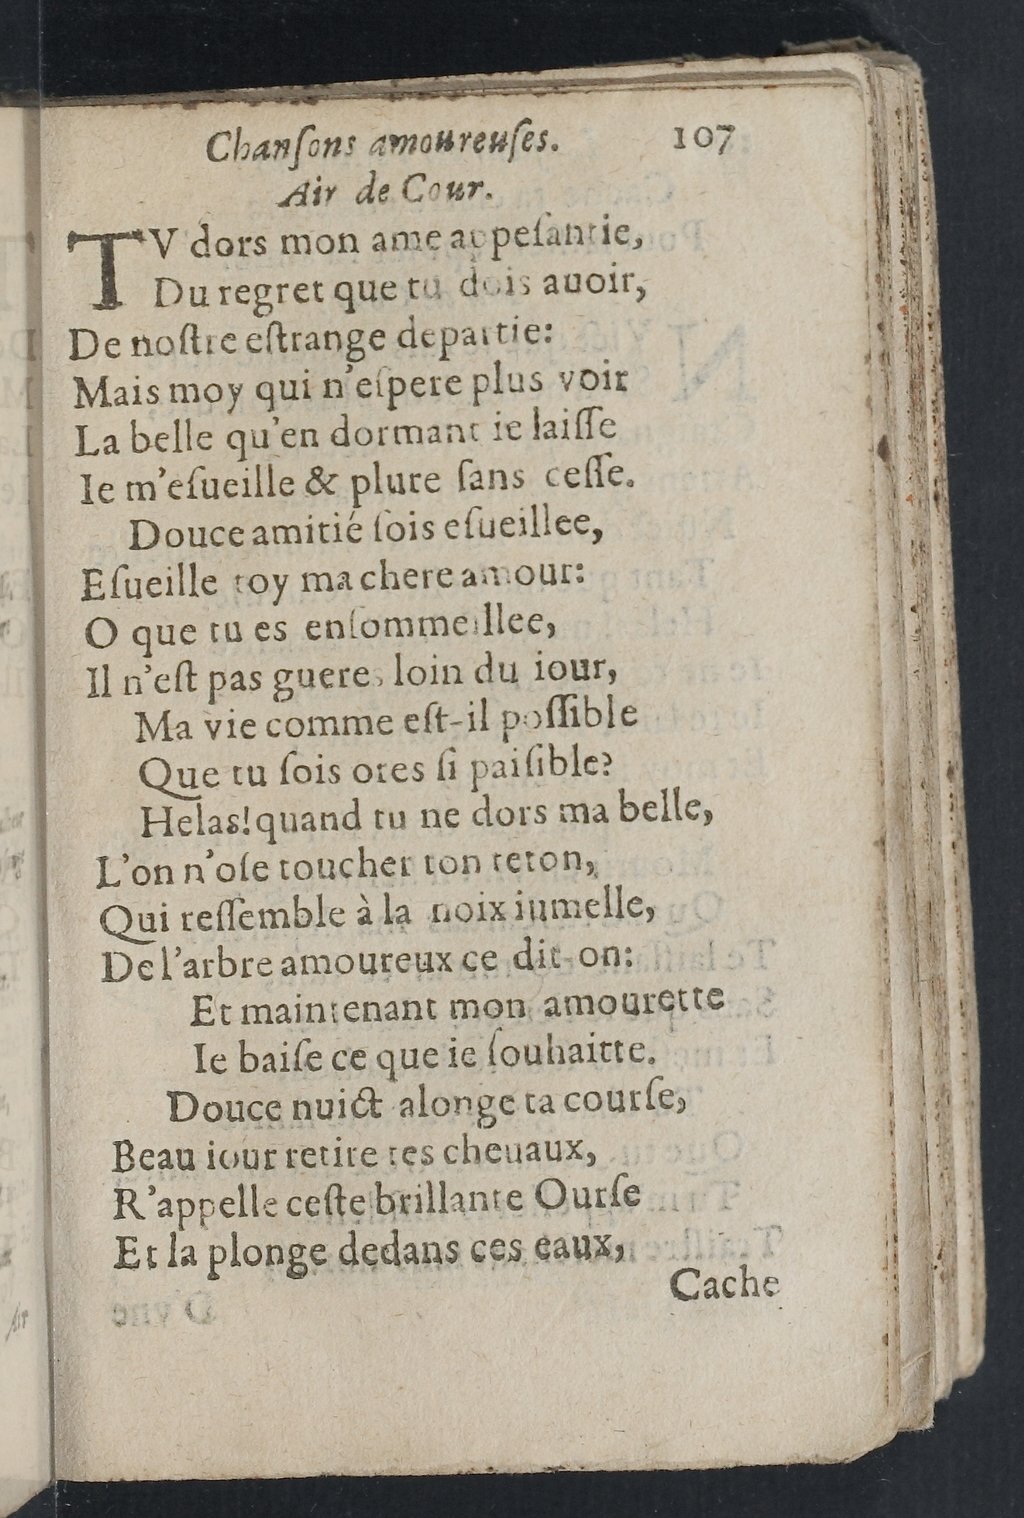 Chanſons amoureuſes. 107
Air de Cour.
TV dors mon ame appeſantie,
Du regret que tu dois auoir,
De noſtre eſtrange departie:
Mais moy qui n'eſpere plus voir
La belle qu'en dormant ie laiſſe
Ie m'eſueille & plure ſans ceſſe.
Douce amitié ſois eſueillee,
Eſueille toy ma chere amour:
O que tu es enſommeillee,
Il n'eſt pas gueres loin du iour,
Ma vie comme eſt-il poſſible
Que tu ſois ores ſi paiſible?
Helas! quand tu ne dors ma belle,
L'on n'oſe toucher ton teton,
Qui reſſemble à la noix iumelle,
De l'arbre amoureux ce dit-on:
Et maintenant mon amourette
Ie baiſe ce que ie ſouhaitte.
Douce nuict alonge ta courſe,
Beau iour retire tes cheuaux,
R'appelle ceſte brillante Ourſe
Et la plonge dedans ces eaux,
Cache